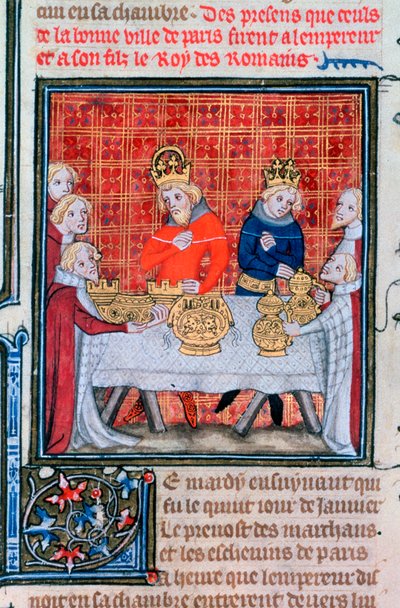 cui en sa chambre.
Des presens que ceuls
de la bonne ville de paris firent a lempereur
et a son filz le Roy des Romains
E mardy ensuyuant qui
fu le quint iour de Januier
Le preuost des marchans
et les escheuins de paris
a heure que lempereur dis
noit en sa chambre entrerent deuers lui